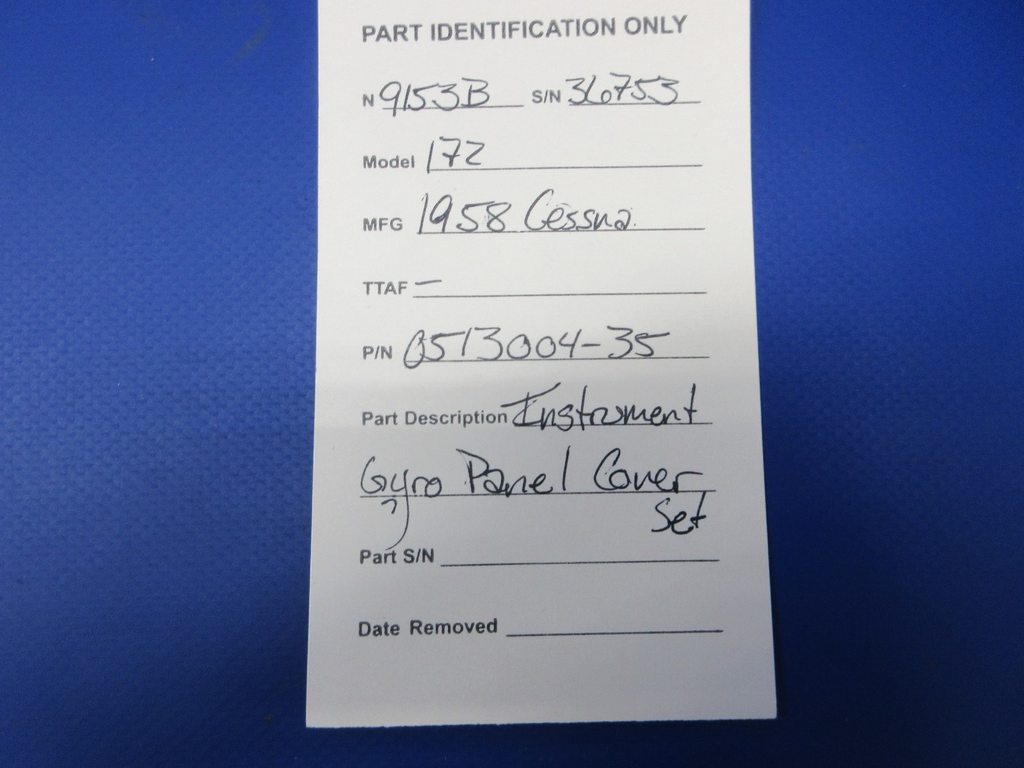 PART IDENTIFICATION ONLY
N 9153B S/N 36753
Model 172
MFG 1958 Cessna
TTAF –
P/N 0513004-35
Part Description Instrument
Gyro Panel Cover
Set
Part S/N
Date Removed